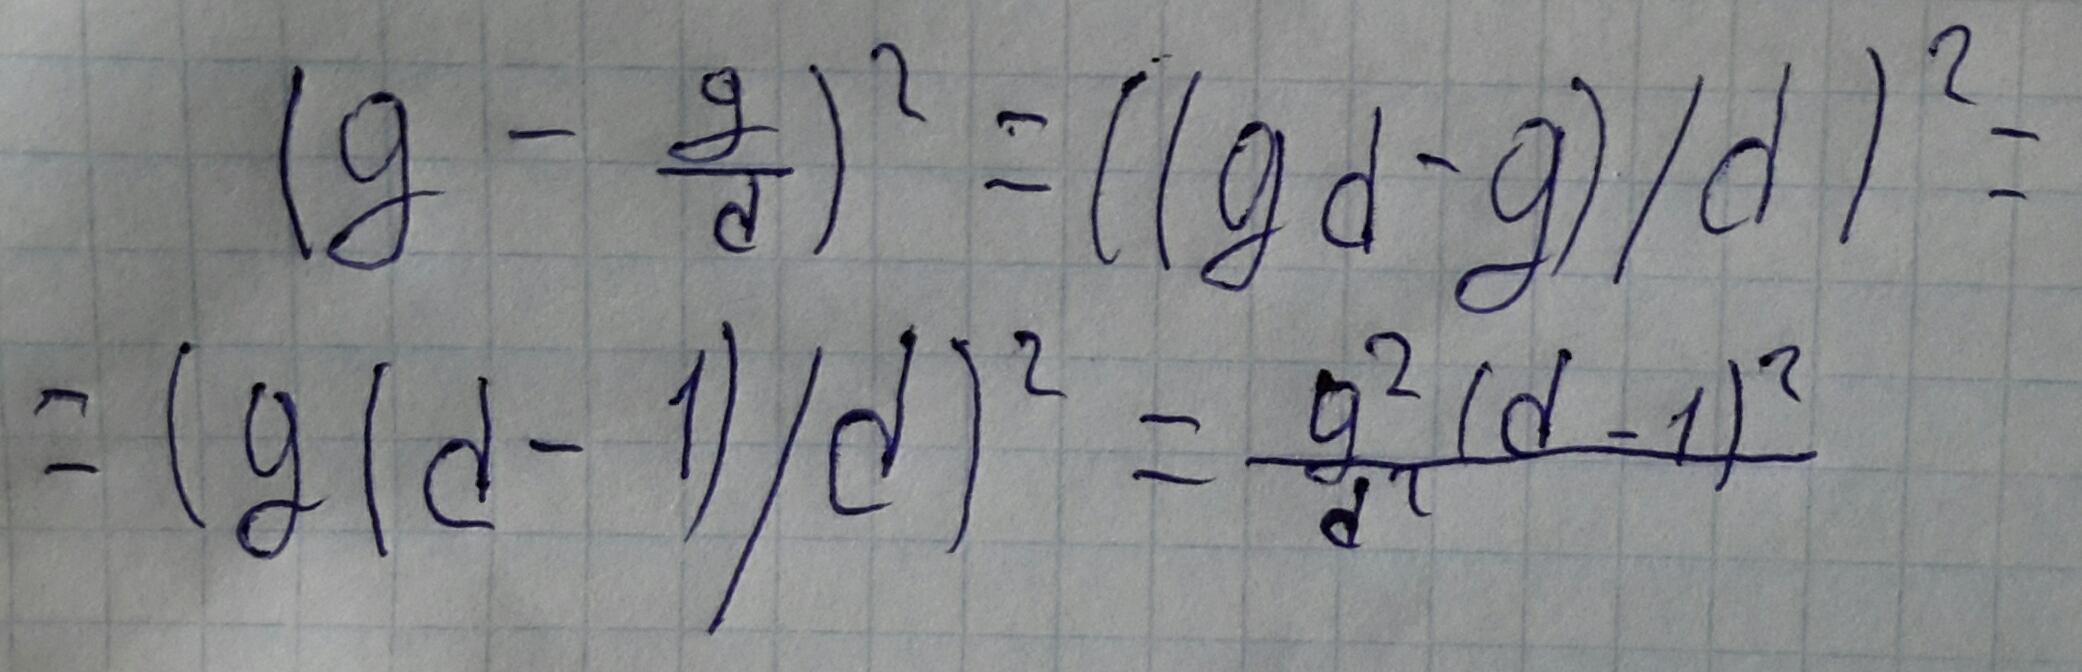 (g - g/d)² = ((gd-g)/d)² =
= (g(d-1)/d)² = g²(d-1)²/d²